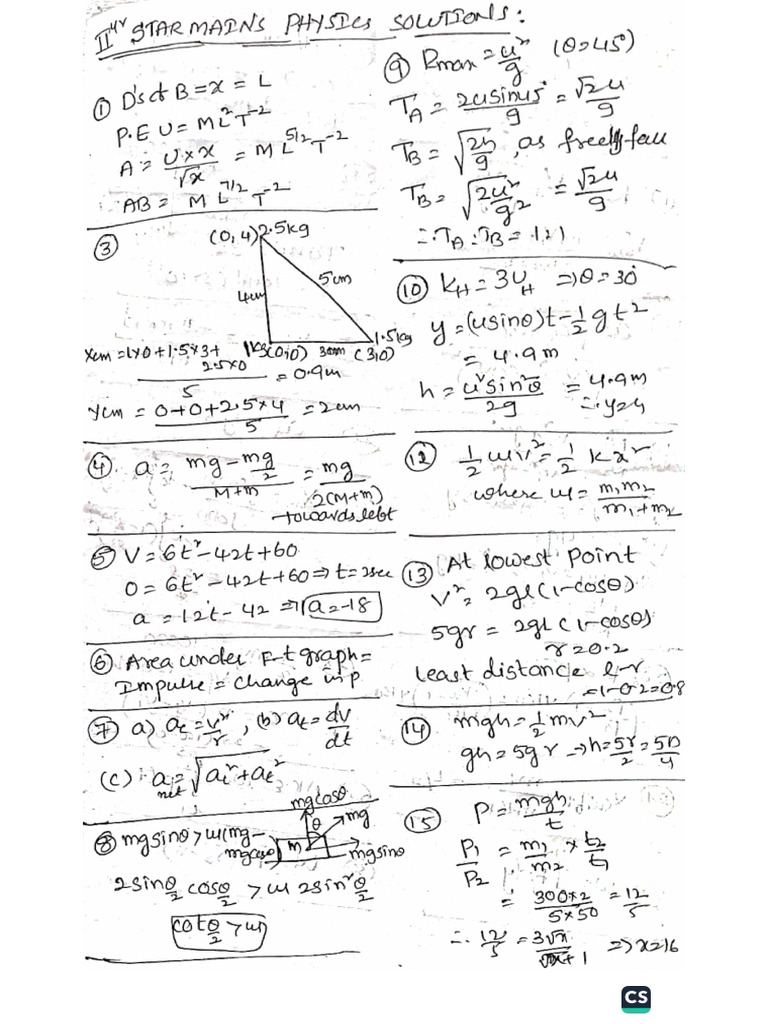 II^yr STAR MAINS PHYSICS SOLUTIONS:
① D's of B = x = L
P.E U = ML²T⁻²
A = U×x/√x = M L^5/2 T⁻²
AB = M L^7/2 T⁻²
③
(0,4) 2.5kg
4cm
5cm
1.5kg
1kg (0,0) 3cm (3,0)
Xcm = 1×0+1.5×3+2.5×0/5 = 0.9m
Ycm = 0+0+2.5×4/5 = 2cm
④ a = mg-mg/2 / M+m = mg/2(M+m)
towards lebt
⑤ V = 6t²-42t+60
0 = 6t²-42t+60 ⇒ t=2sec
a = 12t-42 ⇒ a=-18
⑥ Area under F-t graph =
Impulse = change in p
⑦ a) ac = v²/r, (b) at = dv/dt
(c) a net = √ac²+at²
mgcosθ
⑧ mgsinθ > μ(mg-mgcosθ)
θ mg
m mgsinθ
2sinθ/2 cosθ/2 > μ 2sin²θ/2
cotθ/2 > μ
⑨ Rmax = u²/g (θ=45°)
TA = 2usin45°/g = √2u/g
TB = √2h/g, as freely fall
TB = √2u²/g² = √2u/g
∴ TA:TB = 1:1
⑩ KH = 3UH ⇒ θ=30°
y = (usinθ)t-½gt²
= 4.9m
h = u²sin²θ/2g = 4.9m
∴ y=h
⑫ ½μv² = ½kx²
where μ = m₁m₂/m₁+m₂
⑬ At lowest point
V² = 2gl(1-cosθ)
5gr = 2gl(1-cosθ)
r=0.2
least distance l-r
=1-0.2=0.8
⑭ mgh = ½mv²
gh = 5gr → h = 5r/2 = 5D/4
⑮ P = mgh/t
P₁/P₂ = m₁/m₂ × t₂/t₁
= 300×2/5×50 = 12/5
∴ 12/5 = 3√x/√x+1 ⇒ x=16
CS